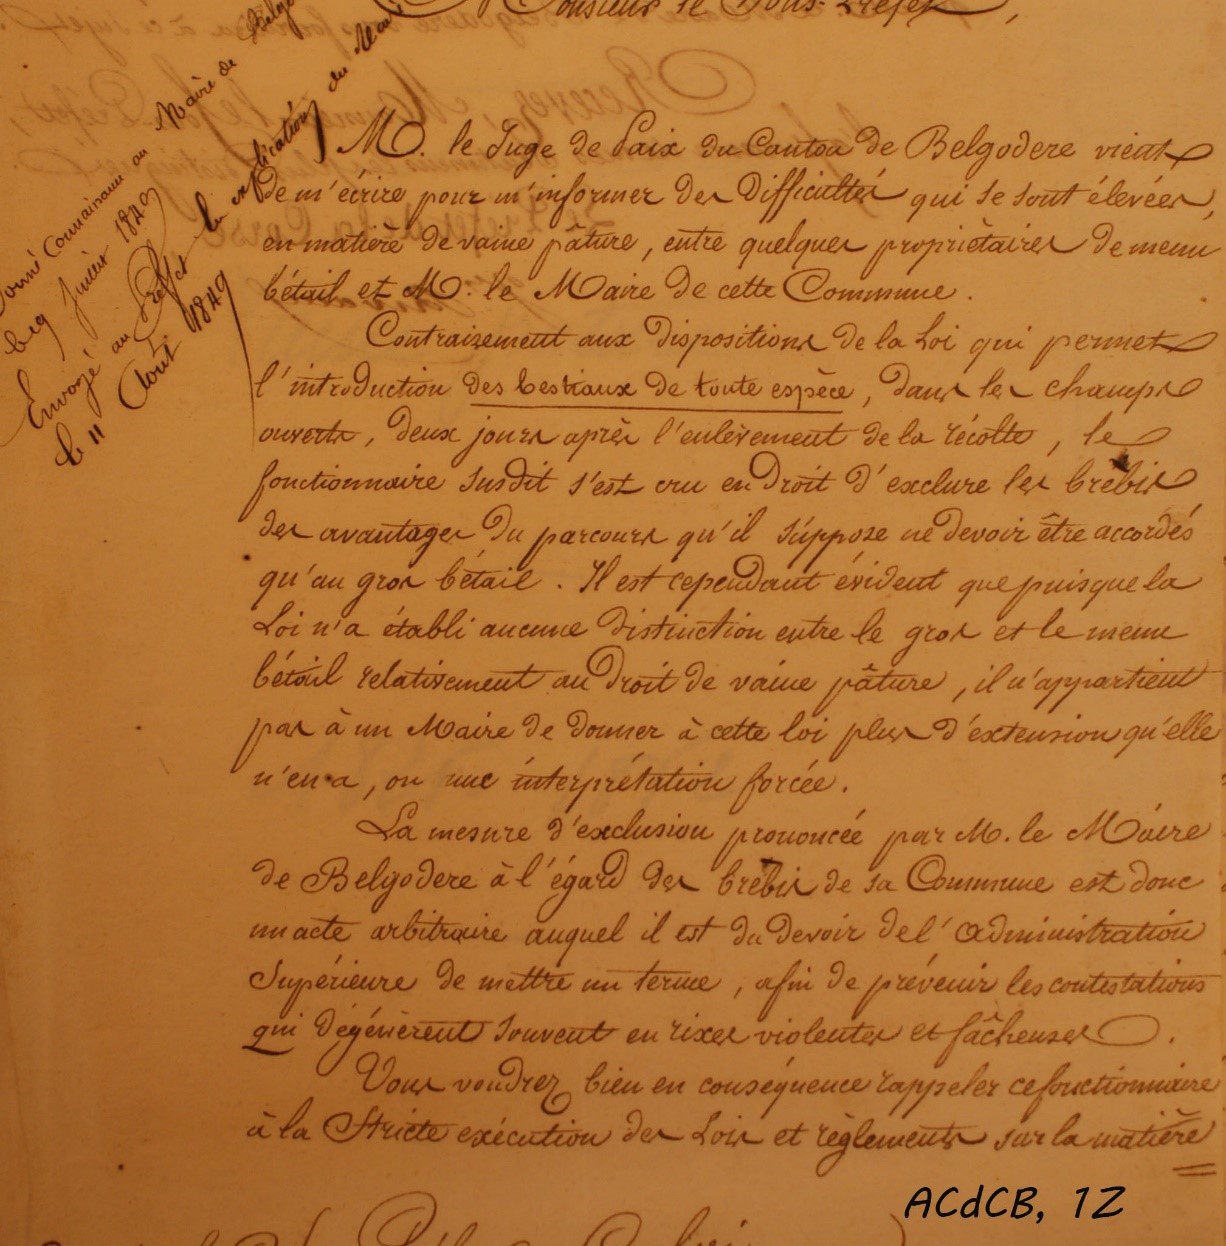 Monsieur le Sous-Préfet,
Donné Connaissance au Maire de Belgo
le 19 Juillet 1849
Envoyé au Préfet les explications du Maire
le 11 Août 1849
M. le Juge de Paix du Canton de Belgodere vient
de m'écrire pour m'informer des difficultés qui se sont élevées,
en matière de vaine pâture, entre quelques propriètaires de menu
bétail et M. le Maire de cette Commune.
Contrairement aux dispositions de la Loi qui permet
l'introduction des bestiaux de toute espèce, dans les champs
ouverts, deux jours après l'enlèvement de la récolte, le
fonctionnaire susdit s'est cru en droit d'exclure les brebis
des avantages du parcours qu'il suppose ne devoir être accordés
qu'au gros bétail. Il est cependant évident que puisque la
Loi n'a établi aucune distinction entre le gros et le menu
bétail relativement au droit de vaine pâture, il n'appartient
pas à un Maire de donner à cette loi plus d'extension qu'elle
n'en a, ou une interprétation forcée.
La mesure d'exclusion prononcée par M. le Maire
de Belgodere à l'égard des brebis de sa Commune est donc
un acte arbitraire auquel il est du devoir de l'administration
Supérieure de mettre un terme, afin de prévenir les contestations
qui dégénèrent souvent en rixes violentes et fâcheuses.
Vous voudrez bien en conséquence rappeler ce fonctionnaire
à la Stricte exécution des Lois et règlements sur la matière
ACdCB, 1Z